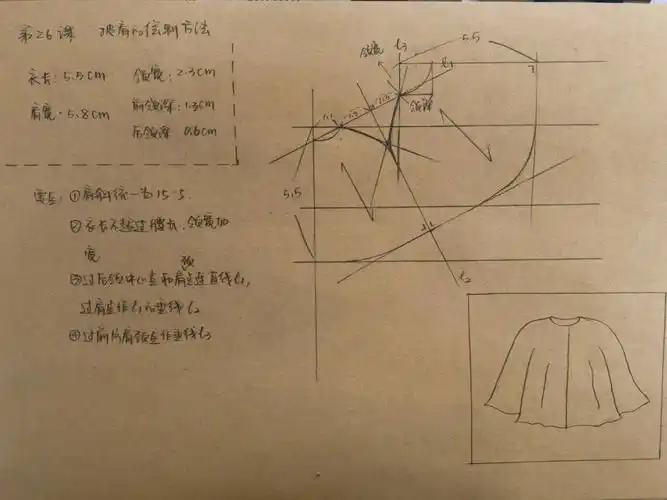 第26课 披肩的绘制方法
衣长:5.5cm 领宽:2.3cm
肩宽:5.8cm 前领深:1.3cm
后领深 0.6cm
要点:①肩斜统一为15:5.
②衣长不超过腰长,领宽加
宽
③过后领中心点和肩颈点连直线l₁,
过肩点作l₁的垂线l₂
④过前片肩颈点作垂线l₃
l₃
5.5
领宽
l₁
领深
5.5
l₂